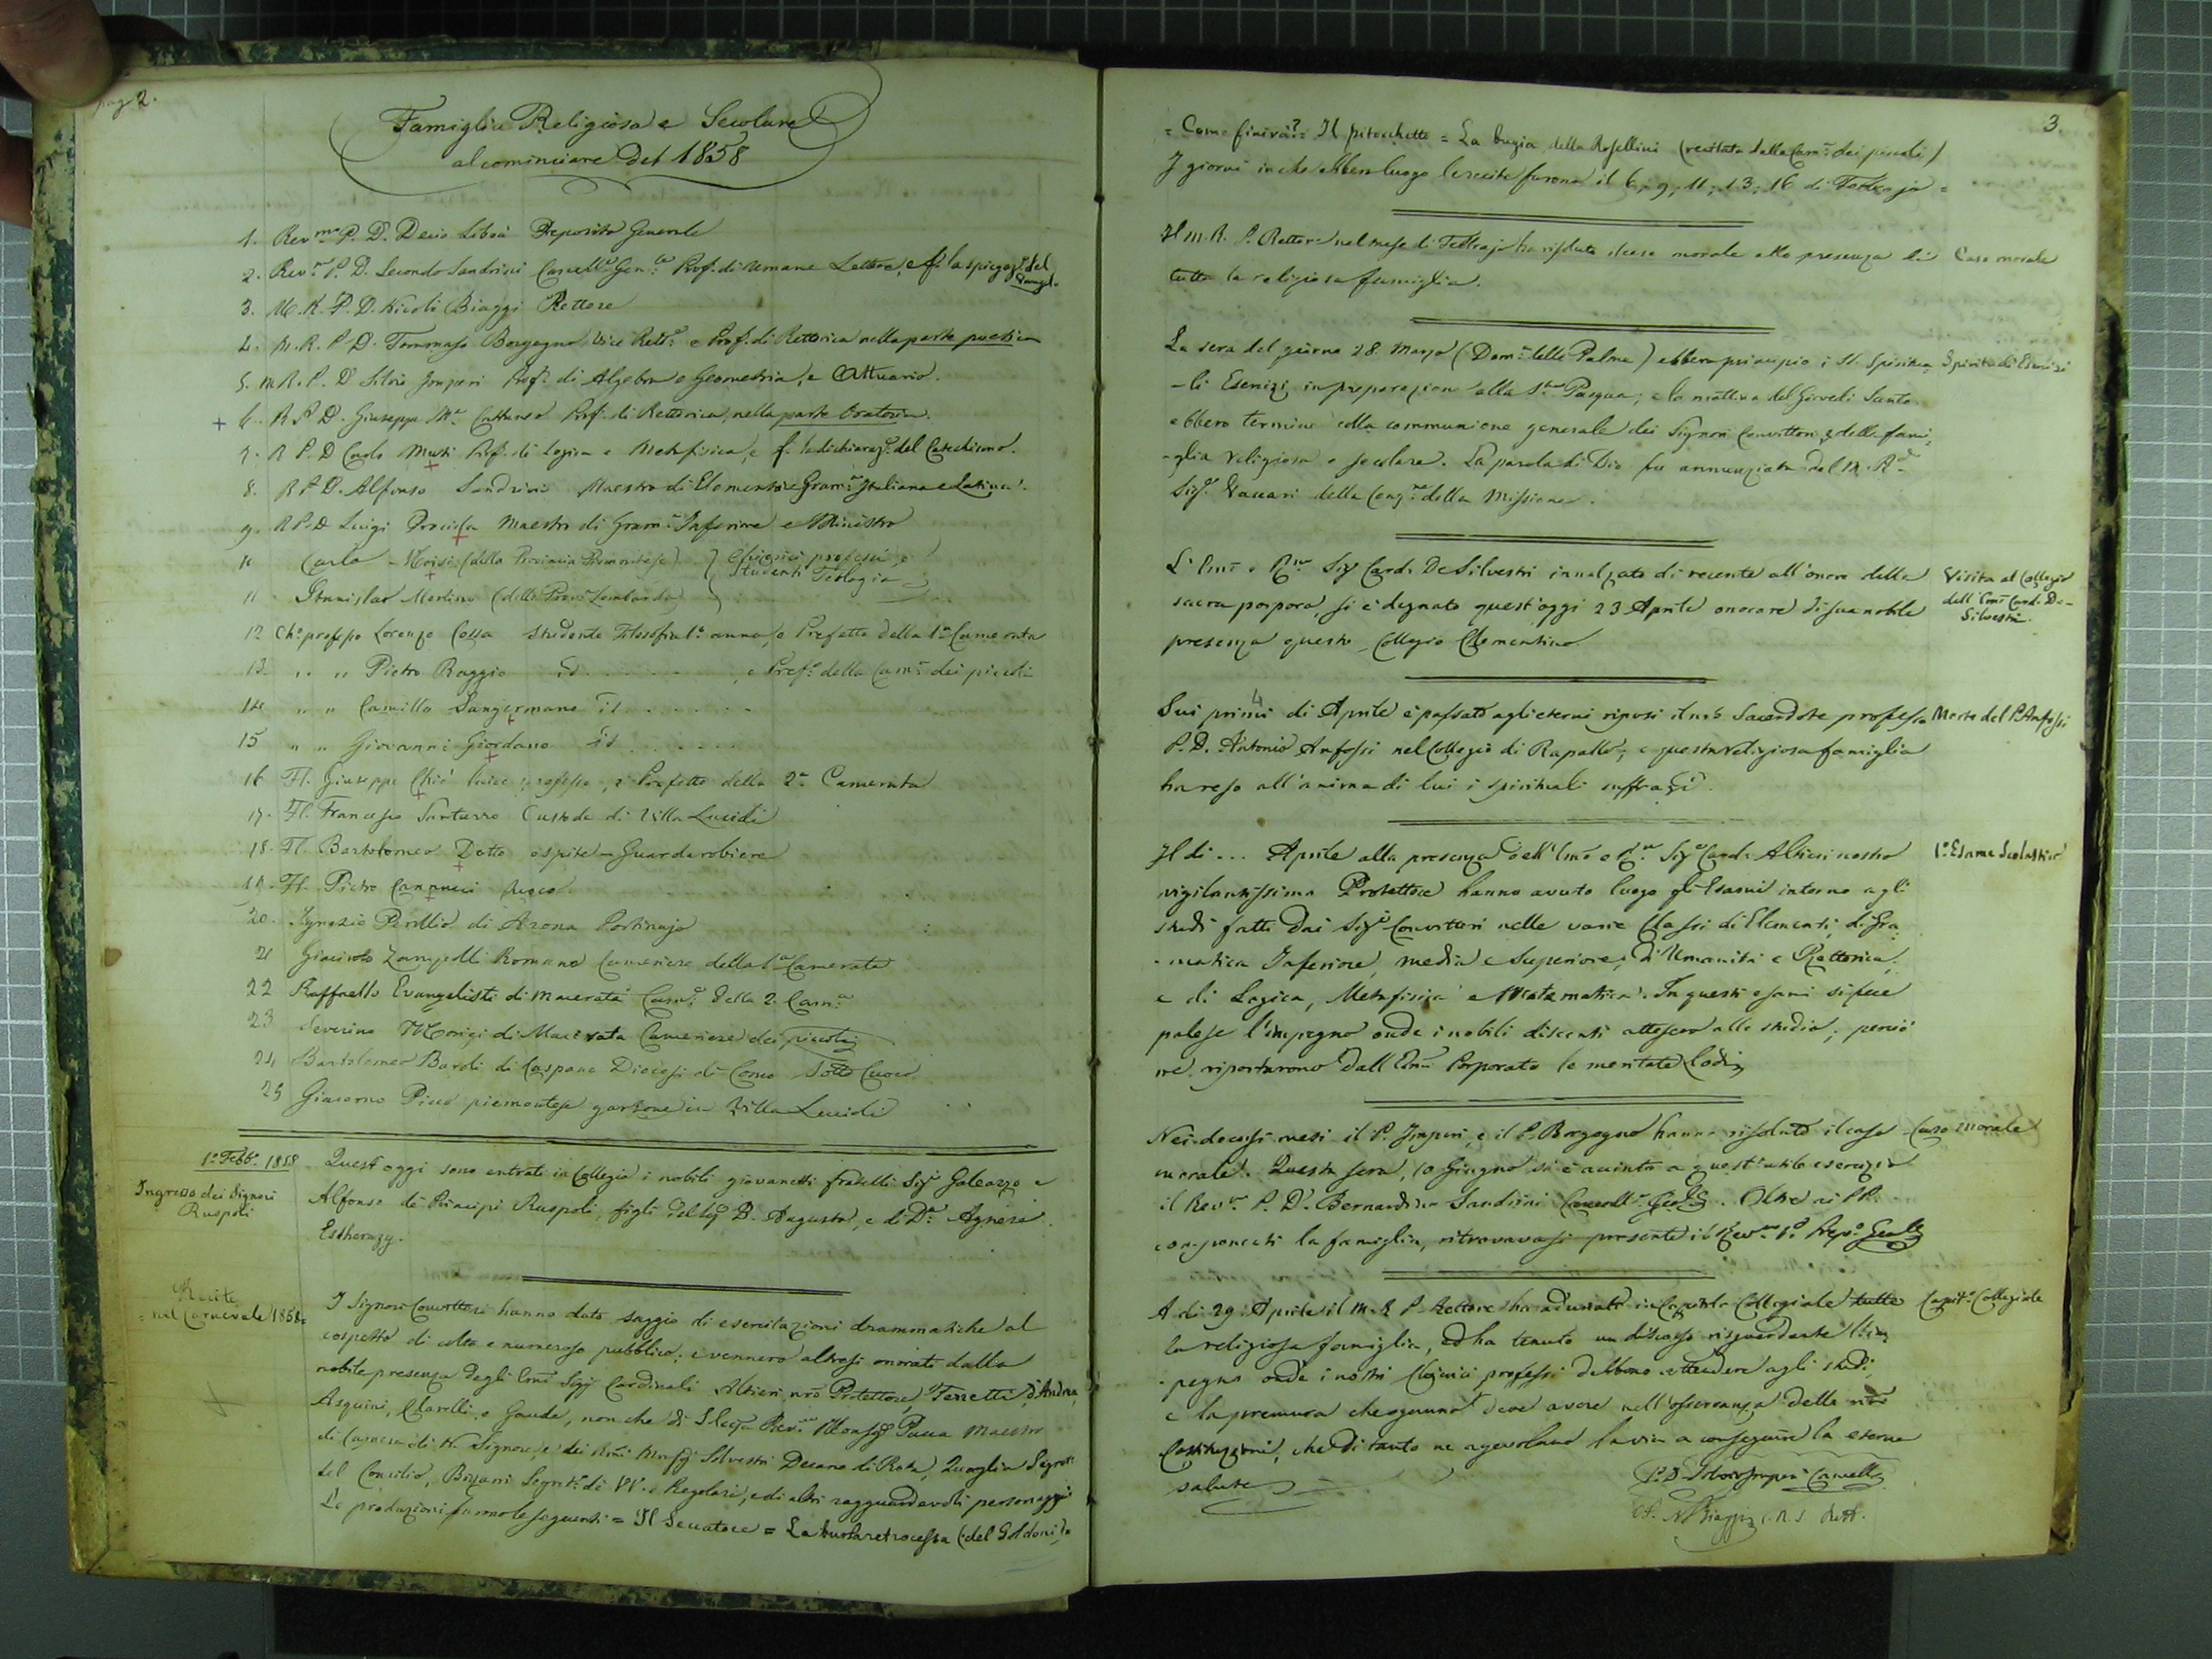 pag 2.
Famiglia Religiosa e Secolare
al cominciare del 1858
1. Rev.mo P. D. Decio Libois Preposito Generale
2. Rev.o P. D. Secondo Sandrini Cancell.e Gen.le Prof. di Umane Lettere, e f. la spiegaz. del Vangel.
3. M. R. P. D. Nicolò Biaggi Rettore
4. M. R. P. D. Tommaso Borgogno Vice Rett.e e Prof. di Rettorica nella parte poetica
5. M R. P. D Silvio Imperi Prof. di Algebra e Geometria, e Attuario.
+ 6. R P D. Giuseppe M.a Cattaneo Prof. di Rettorica, nella parte Oratoria.
7. R P. D Carlo Muti Prof. di Logica e Metafisica, e f. la dichiaraz. del Catechismo.
8. R P D. Alfonso Sandrini Maestro di Elementi e Gram.a Italiana e Latina.
9. R P. D Luigi Procida Maestro di Gram.a Inferiore e Ministro
10 Carlo Moisi (della Provincia Piemontese) } Chierici professi, e
11 Stanislao Merlini (della Prov.a Lombarda) } Studenti Teologia
12 Ch.o professo Lorenzo Cossa studente Filosofia 1.o anno, e Prefetto della 1.a Camerata
13. " " Pietro Raggio id. . . . . . , e Pref.o della Cam.a dei piccoli
14 " " Camillo Sangermano id. . . . . .
15 " " Giovanni Giordano id. . . . . .
16 Fl. Giuseppe Chiò laico professo, e Prefetto della 2.a Camerata
17. Fl. Francesco Santurro Custode di Villa Lucidi
18. Fl. Bartolomeo Dotto ospite - Guardarobiere
19. Fl. Pietro Canonici cuoco
20. Ignazio Perillio di Arona Portinajo
21 Giacinto Zampelli Romano Cameriere della 1.a Camerata
22 Raffaello Evangelisti di Macerata Cam.e della 2. Cam.a
23 Severino Morici di Macerata Cameriere dei piccoli
24 Bartolomeo Baroli di Caspano Diocesi di Como Sotto Cuoco
25 Giacomo Pico piemontese garzone in Villa Lucidi
1.o Febb.o 1858
Ingresso dei Signori
Ruspoli
Quest'oggi sono entrati in Collegio i nobili giovanetti fratelli Sig.i Galeazzo e
Alfonso de' Principi Ruspoli, figli del Sig. B. Augusto, e di D.a Agnese
Estherazy.
Recite
nel Carnevale 1858
I Signori Convittori hanno dato saggio di esercitazioni drammatiche al
cospetto di colto e numeroso pubblico; e vennero altresì onorati dalla
nobile presenza degli Emi Sigg. Cardinali Altieri nro Protettore, Ferretti, D'Andrea,
Asquini, Clarelli, e Gaude, non che di S. Ecc.za Rev.ma Monsig. Pacca Maestro
di Camera di N. Signore, e dei Rmi Monsig. Silvestri Decano di Rota, Quaglia Segret.
del Concilio, Bizzarri Segret.o di VV. e Regolari, e di altri ragguardevoli personaggi
Le produzioni furono le seguenti = Il Seccatore = La burla retrocessa (del Goldoni) =
3.
= Come finirà? = Il pitocchetto = La bugia della Rosellini (recitata dalla Cam.a dei piccoli)
I giorni in che ebbero luogo le recite furono il 6, 9, 11, 13, 16 di Febbrajo =
Il M. R. P. Rettore nel mese di Febbrajo ha risoluto il caso morale alla presenza di
tutta la religiosa famiglia.
Caso morale
La sera del giorno 28 Marzo (Dom.a delle Palme) ebbero principio i SS. Spiritua
-li Esercizi in preparazione alla S.ta Pasqua; e la mattina del Giovedì Santo
ebbero termine colla communione generale dei Signori Convittori e della fami
-glia religiosa e secolare. La parola di Dio fu annunziata dal M. R.do
Sig.r Vaccari della Cong.ne della Missione.
Spirituali Esercizi
L'Emo e Rmo Sig Card. De Silvestri innalzato di recente all'onore della
sacra porpora, si è degnato quest'oggi 23 Aprile onorare di sua nobile
presenza questo Collegio Clementino.
Visita al Collegio
dell'Emo Card. De-
Silvestri.
Sui primi 4 di Aprile è passato agli eterni riposi il nro Sacerdote professo
P. D. Antonio Anfossi nel Collegio di Rapallo; e questa religiosa famiglia
ha reso all'anima di lui i spirituali suffragi.
Morte del P. Anfossi
Il dì . . . Aprile alla presenza dell'Emo e Rmo Sig.r Card. Altieri nostro
vigilantissimo Protettore hanno avuto luogo gli Esami intorno agli
studi fatti dai Sig.i Convittori nelle varie Classi di Elementi, di Gra
-matica Inferiore, media e Superiore, d'Umanità e Rettorica,
e di Logica, Metafisica e Matematica. In questi esami si fece
palese l'impegno onde i nobili discenti attesero allo studio; perciò
ne riportarono dall'Emo Porporato le meritate lodi.
1.o Esame Scolastico
Nei decorsi mesi il P. Imperi, e il P. Borgogno hanno risoluto il caso
morale. Questa sera, 10 Giugno si è accinto a quest'utile esercizio
il Rev.mo P. D. Bernardino Sandrini Cancell.e Gen.le. Oltre ai PP.
componenti la famiglia, ritrovavasi presente il Rev.mo P. Prep.o Gen.le
Caso morale
A di 29 Aprile il M. R P. Rettore ha adunato in Capitolo Collegiale tutta
la religiosa famiglia, ed ha tenuto un discorso risguardante l'im
-pegno onde i nostri Chierici professi debbono attendere agli studi,
e la premura che ognuno deve avere nell'osservanza delle nre
Costituzioni, che di tanto ne agevolano la via a conseguire la eterna
salute
Capit.o Collegiale
P. D. Silvio Imperi Cancell.
N Biaggi C. R. S. Rett.